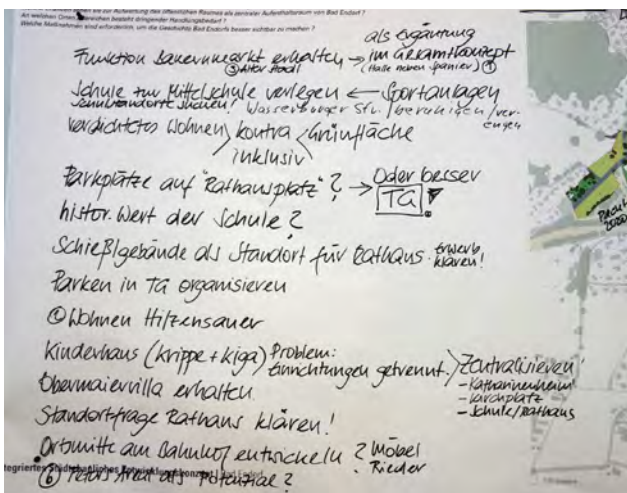 zur Aufwertung des öffentlichen Raumes als zentraler Aufenthaltsraum von Bad Endorf ?
An welchen Orten besteht dringender Handlungsbedarf ?
Welche Maßnahmen sind erforderlich, um die Geschichte Bad Endorfs besser sichtbar zu machen ?
als Ergänzung
Funktion Bauernmarkt erhalten → im Gesamtkonzept
③ Alter Stadl (Halle neben Spanier) ①
Schule zur Mittelschule verlegen ← Sportanlagen
Schulstandorte sichern! Wasserburger Str. beruhigen/ver-
engen
verdichtetes Wohnen kontra Grünfläche
inklusiv
Parkplätze auf "Rathausplatz"? → Oder besser
TG !
histor. Wert der Schule ?
Schießlgebäude als Standort für Rathaus. Erwerb
klären!
Parken in TG organisieren
Wohnen Hilzensauer
Kinderhaus (Krippe + Kiga) Problem:
Einrichtungen getrennt. Zentralisieren!
Obermaiervilla erhalten
- Katharinenheim
- Kirchplatz
- Schule/Rathaus
Standortfrage Rathaus klären!
Ortsmitte am Bahnhof entwickeln ? Möbel
Rieder
Integriertes Städtebauliches Entwicklungskonzept | Bad Endorf
⑥ Peters Areal als Potenzial ?
2020